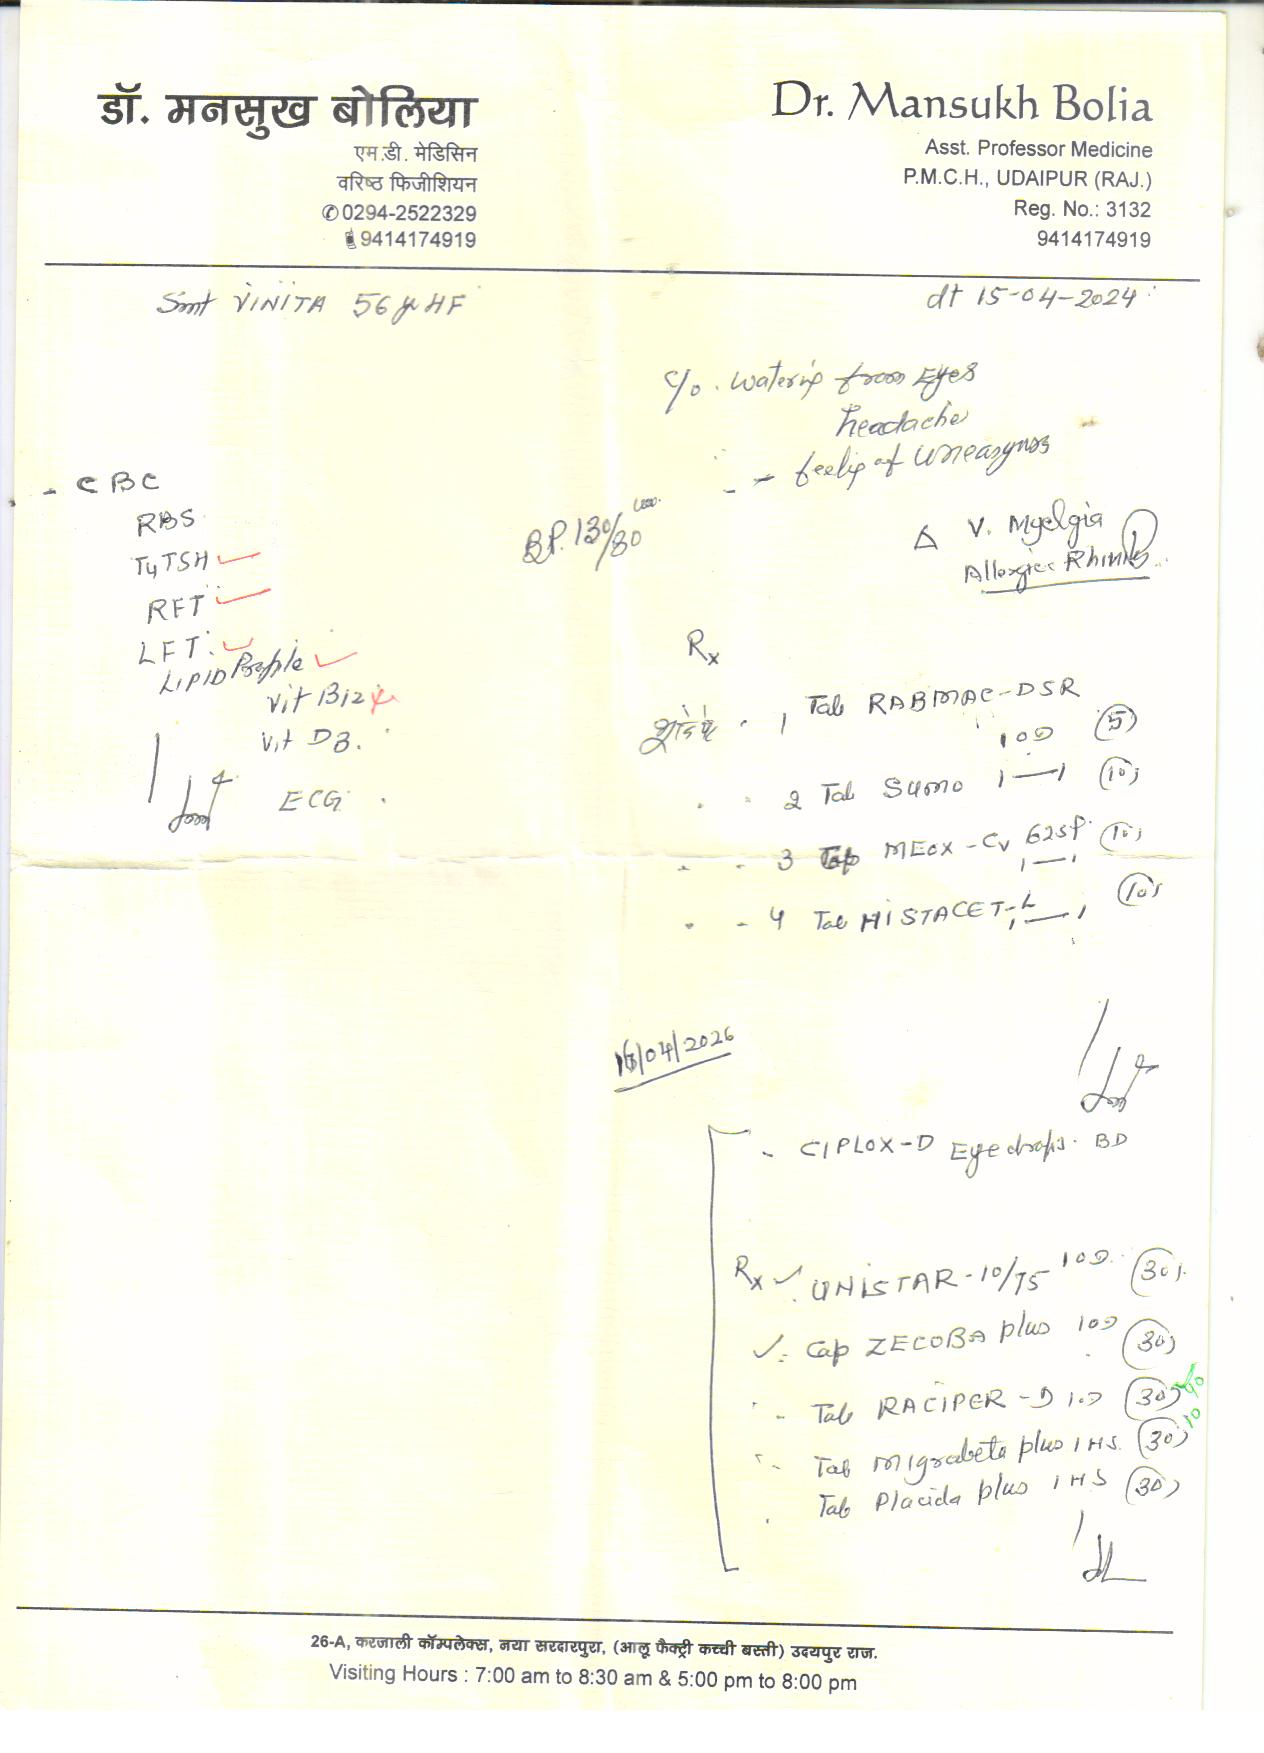 डॉ. मनसुख बोलिया
एम.डी. मेडिसिन
वरिष्ठ फिजीशियन
✆0294-2522329
9414174919
Dr. Mansukh Bolia
Asst. Professor Medicine
P.M.C.H., UDAIPUR (RAJ.)
Reg. No.: 3132
9414174919
Smt VINITA 56 yr HF
dt 15-04-2024
c/o. watering from Eyes
headache
- feeling of uneasyness
- CBC
RBS
T4 TSH
RFT
LFT.
LIPID Profile
Vit B12
Vit D3.
ECG
BP. 130/80
Δ V. Myelgia
Allergic Rhinitis
Rx
1 Tab RABMAC-DSR
1 OD (5)
2 Tab SUMO 1—1 (10)
3 MEOX-CV 625 1—1 (10)
4 Tab HISTACET-L 1—1 (10)
/04/2026
- CIPLOX-D Eye drops. BD
Rx UNISTAR-10/75 1 OD (30)
Cap ZECOBA plus 1 OD (30)
- Tab RACIPER-D 1 OD (30)
- Tab Migrabeta plus 1 HS (30) 10
Tab Placida plus 1 HS (30)
26-A, करजाली कॉम्पलेक्स, नया सरदारपुरा, (आलू फैक्ट्री कच्ची बस्ती) उदयपुर राज.
Visiting Hours : 7:00 am to 8:30 am & 5:00 pm to 8:00 pm